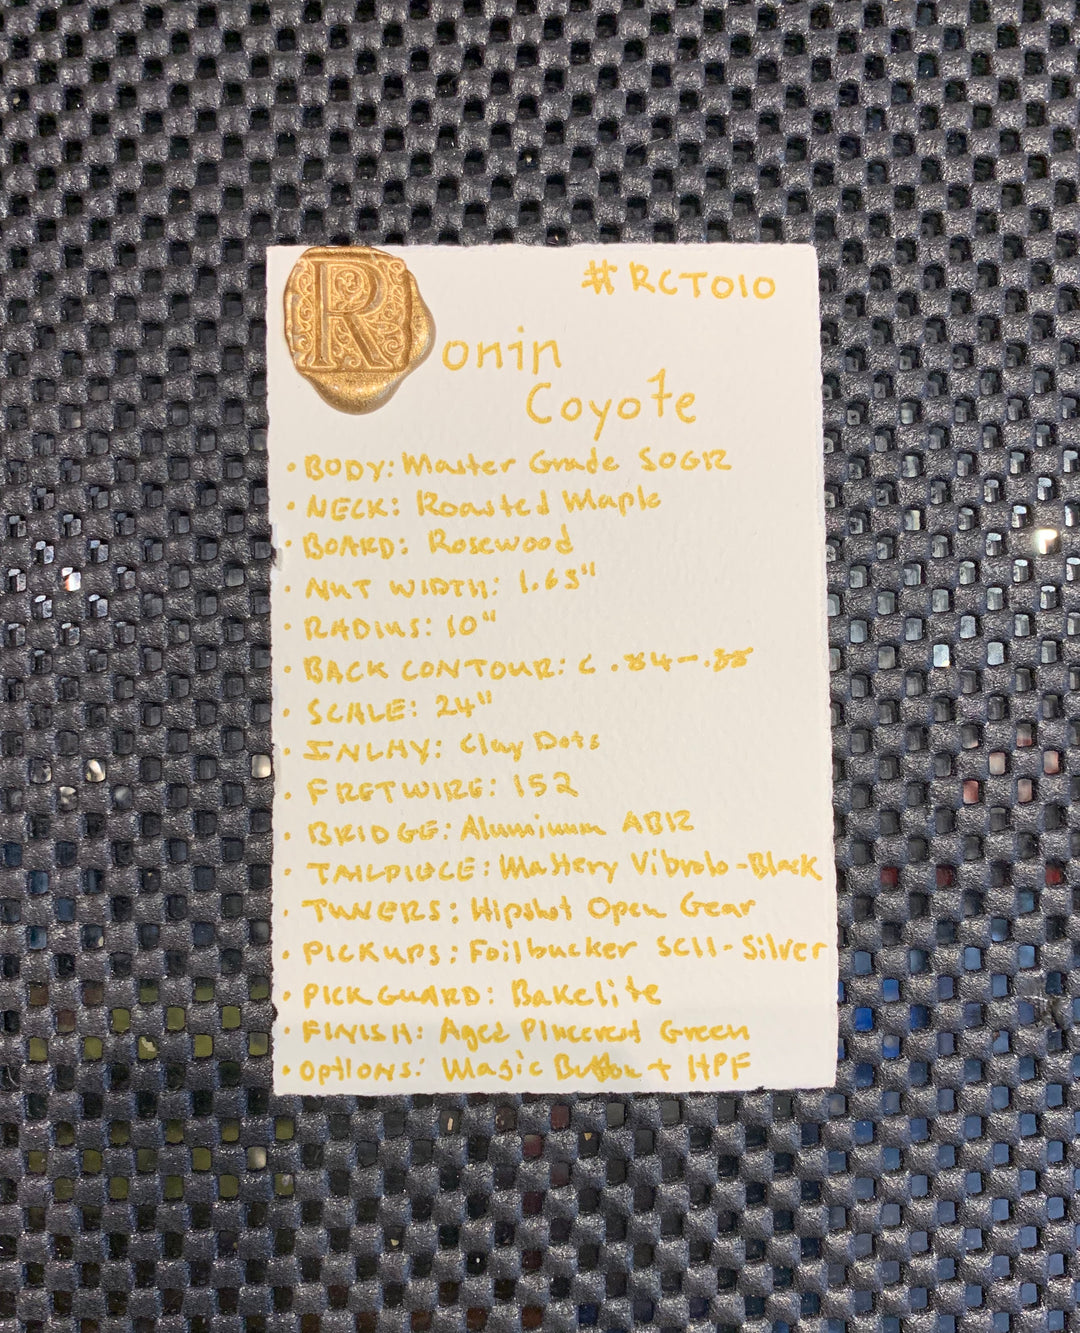 #RCT010
Ronin
Coyote
• BODY: Master Grade SOGR
• NECK: Roasted Maple
• BOARD: Rosewood
• NUT WIDTH: 1.65"
• RADIUS: 10"
• BACK CONTOUR: C .84-.88
• SCALE: 24"
• INLAY: Clay Dots
• FRETWIRE: 152
• BRIDGE: Aluminum ABR
• TAILPIECE: Mastery Vibrato-Black
• TUNERS: Hipshot Open Gear
• PICKUPS: Foilbucker SC11-Silver
• PICKGUARD: Bakelite
• FINISH: Aged Pinecrest Green
• OPTIONS: Magic Button + HPF